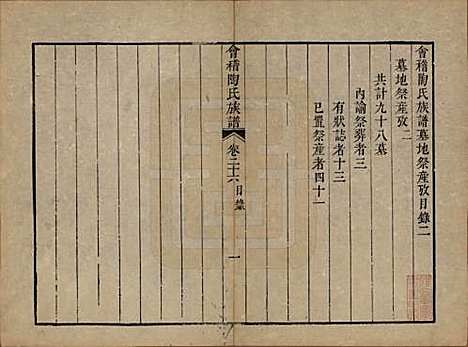 會稽陶氏族譜墓地祭産攷目錄二
墓地祭産攷二
共計九十八墓
內諭祭葬者三
有狀誌者十三
已置祭産者四十一
會稽陶氏族譜
卷二十六目錄
一